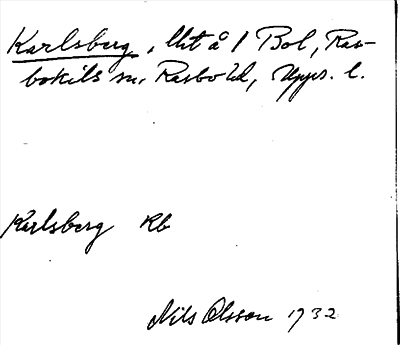 Karlsberg, lht å 1 Bol, Ras-
bokils sn, Rasbo hd, Upps. l.
Karlsberg Kb
Nils Olsson 1932